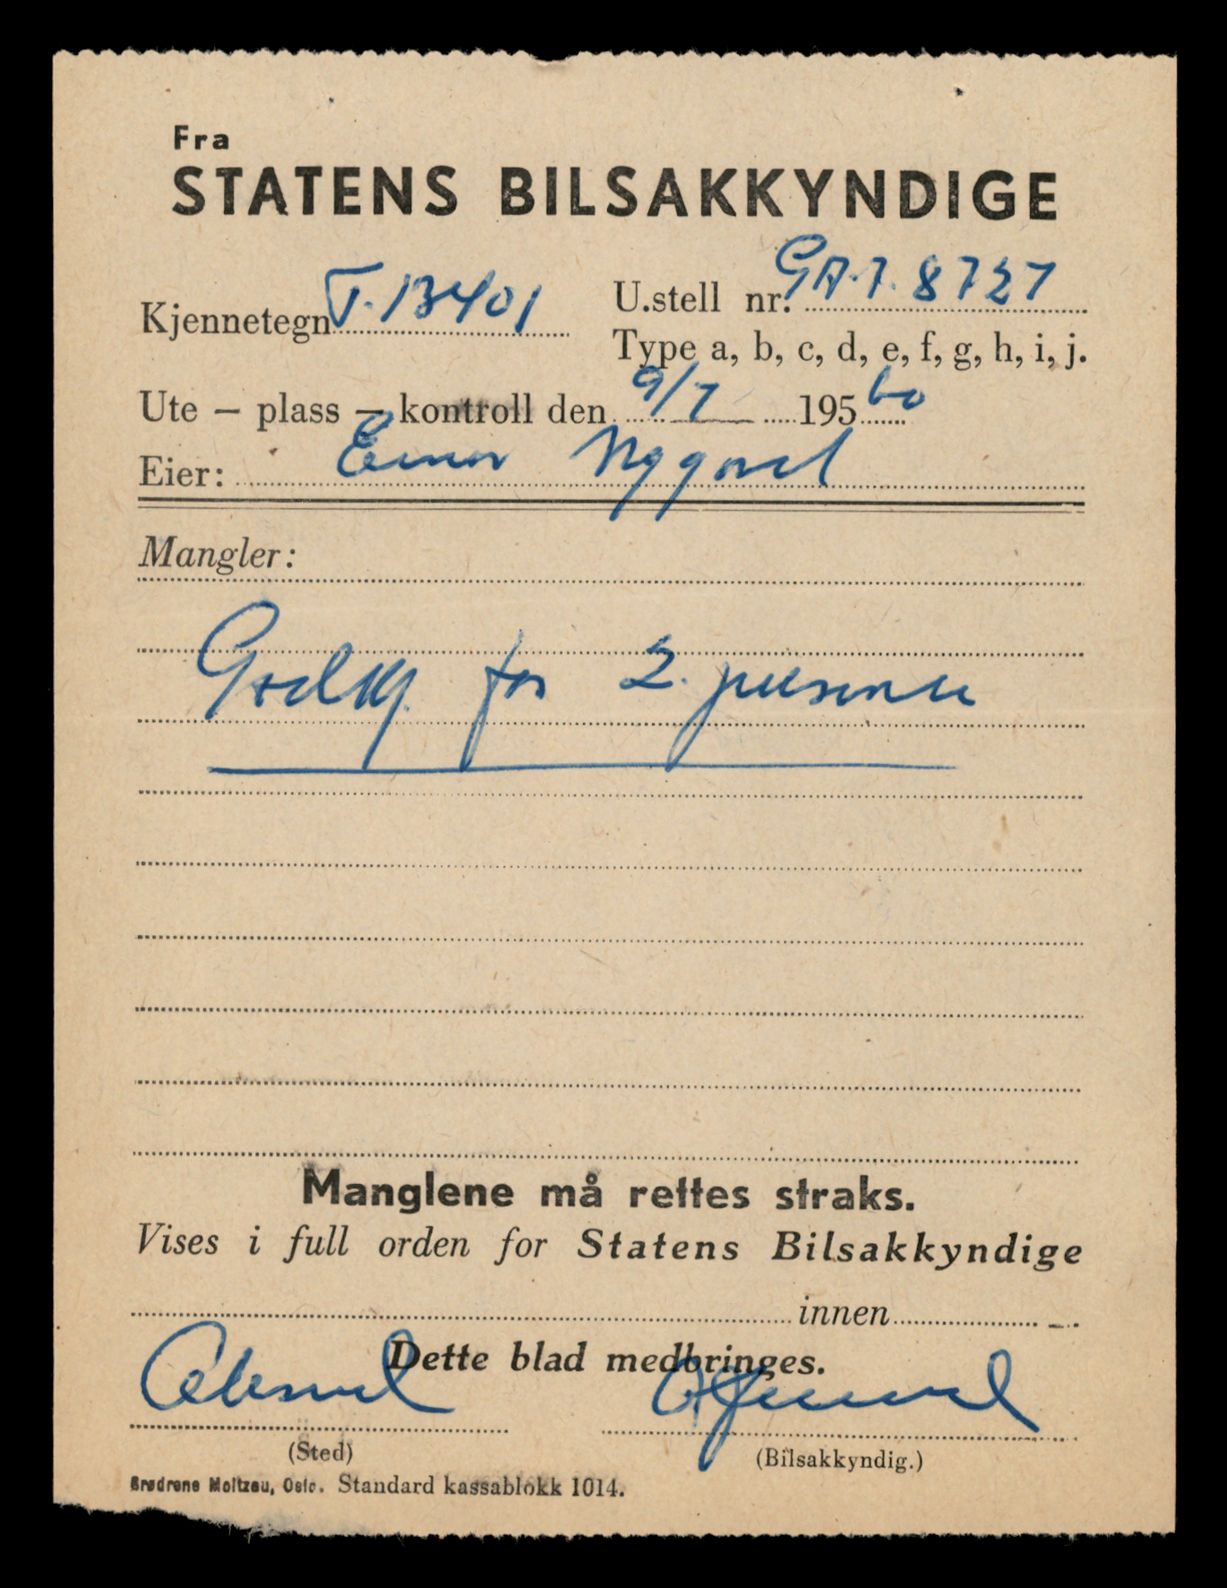 Fra
STATENS BILSAKKYNDIGE
Kjennetegn T.13401 U.stell nr. GA.7.8727
Type a, b, c, d, e, f, g, h, i, j.
Ute – plass – kontroll den 9/7 195 60
Eier: Einar Nygård
Mangler:
Godkj. for 2. personer
Manglene må rettes straks.
Vises i full orden for Statens Bilsakkyndige
innen
Dette blad medbringes.
Ålesund
(Sted) (Bilsakkyndig.)
Brødrene Moltzau, Oslo. Standard kassablokk 1014.